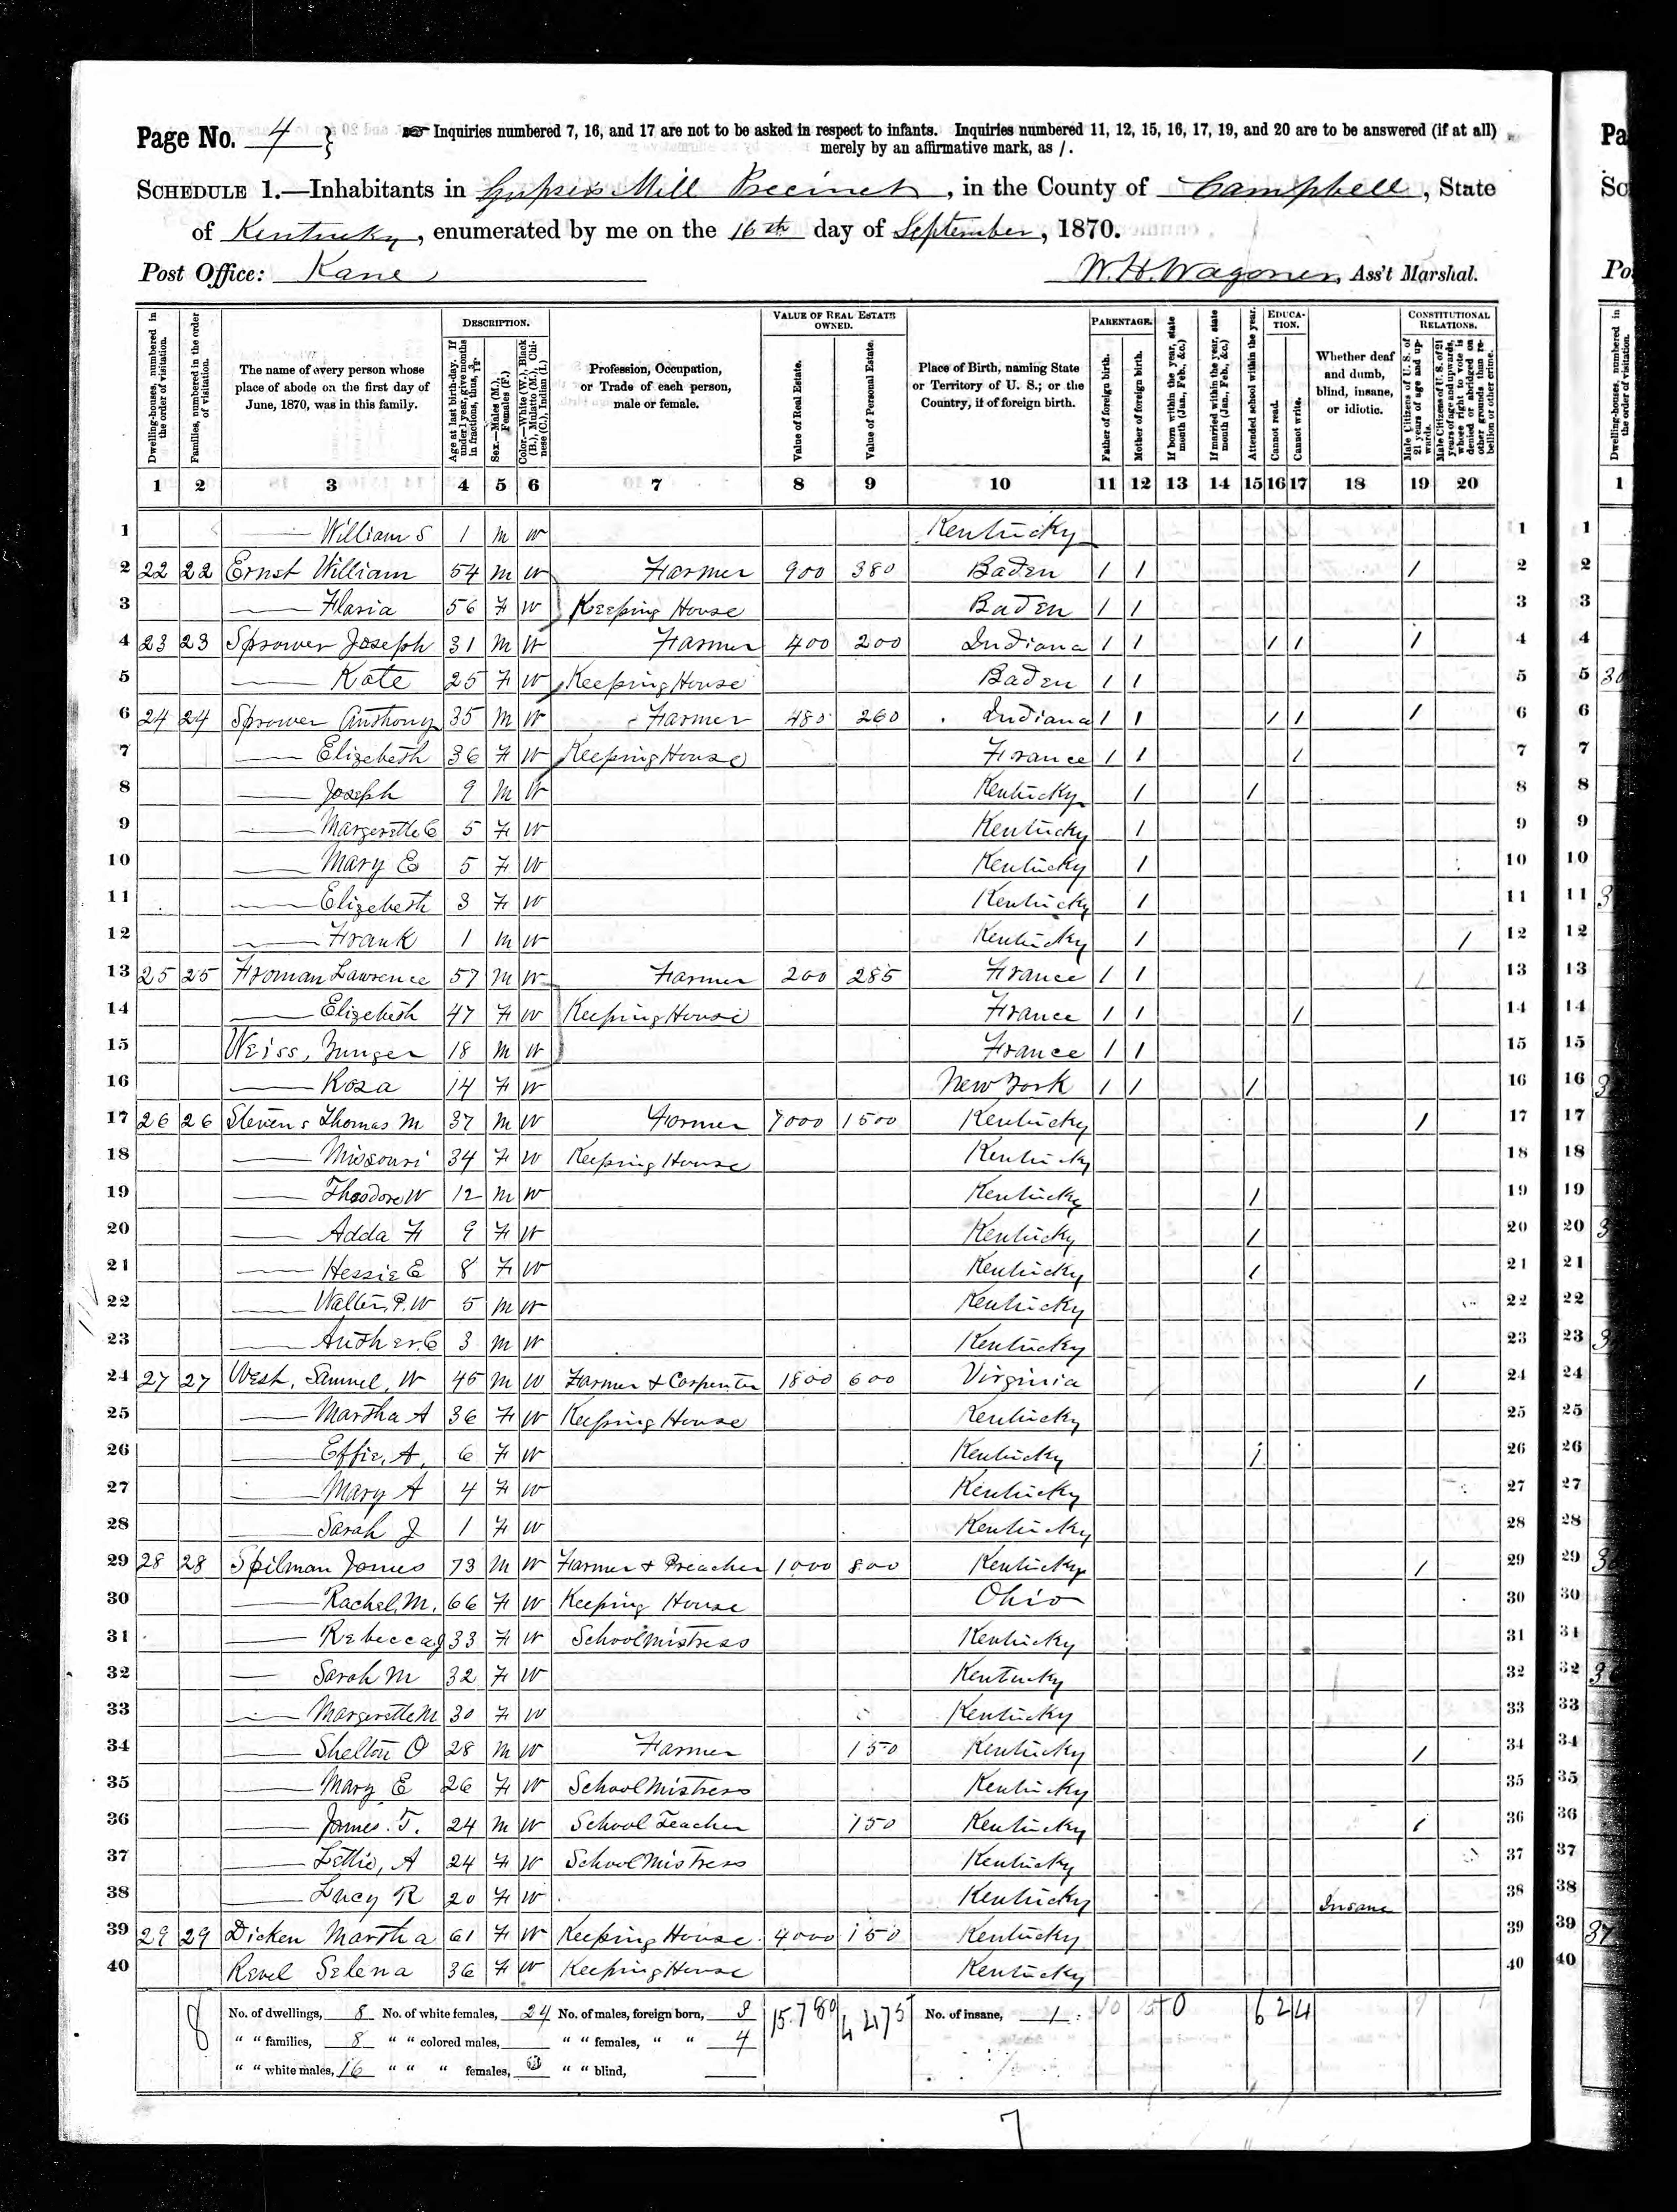 Page No. 4 } Inquiries numbered 7, 16, and 17 are not to be asked in respect to infants. Inquiries numbered 11, 12, 15, 16, 17, 19, and 20 are to be answered (if at all)
merely by an affirmative mark, as /.
SCHEDULE 1.—Inhabitants in Mill Precinct, in the County of Campbell, State
of Kentucky, enumerated by me on the 16th day of September, 1870.
Post Office: Kane W. H. Wagoner, Ass't Marshal.
Dwelling-houses, numbered in the order of visitation.
Families, numbered in the order of visitation.
The name of every person whose place of abode on the first day of June, 1870, was in this family.
DESCRIPTION.
Age at last birth-day. If under 1 year, give months in fractions, thus, 3/12
Sex.—Males (M.), Females (F.)
Color.—White (W.), Black (B.), Mulatto (M.), Chinese (C.), Indian (I.)
Profession, Occupation, or Trade of each person, male or female.
VALUE OF REAL ESTATE OWNED.
Value of Real Estate.
Value of Personal Estate.
Place of Birth, naming State or Territory of U. S.; or the Country, if of foreign birth.
PARENTAGE.
Father of foreign birth.
Mother of foreign birth.
If born within the year, state month (Jan., Feb., &c.)
If married within the year, state month (Jan., Feb., &c.)
Attended school within the year.
EDUCATION.
Cannot read.
Cannot write.
Whether deaf and dumb, blind, insane, or idiotic.
CONSTITUTIONAL RELATIONS.
Male Citizens of U. S. of 21 years of age and upwards.
Male Citizens of U. S. of 21 years of age and upwards, whose right to vote is denied or abridged on other grounds than rebellion or other crime.
1 2 3 4 5 6 7 8 9 10 11 12 13 14 15 16 17 18 19 20
1 — William S 1 M W Kentucky 1
2 22 22 Ernst William 54 M W Farmer 900 380 Baden / / / 2
3 — Flaria 56 F W Keeping House Baden / / 3
4 23 23 Sprower Joseph 31 M W Farmer 400 200 Indiana / / / / / 4
5 — Kate 25 F W Keeping House Baden / / 5
6 24 24 Sprower Anthony 35 M W Farmer 480 260 Indiana / / / / / 6
7 — Elizebeth 36 F W Keeping House France / / / 7
8 — Joseph 9 M W Kentucky / / 8
9 — Margerette C 5 F W Kentucky / 9
10 — Mary E 5 F W Kentucky / 10
11 — Elizebeth 3 F W Kentucky / 11
12 — Frank 1 M W Kentucky / / 12
13 25 25 Froman Lawrence 57 M W Farmer 200 285 France / / / 13
14 — Elizebeth 47 F W Keeping House France / / / 14
15 Weiss, 18 M W France / / 15
16 — Rosa 14 F W New York / / / 16
17 26 26 Stevens Thomas M 37 M W Farmer 7000 1500 Kentucky / 17
18 — Missouri 34 F W Keeping House Kentucky 18
19 — Theodore W 12 M W Kentucky / 19
20 — Adda F 9 F W Kentucky / 20
21 — Hessie E 8 F W Kentucky / 21
22 — Walter P. W 5 M W Kentucky 22
23 — Auther C 3 M W Kentucky 23
24 27 27 West, Samuel, W 45 M W Farmer & Carpenter 1800 600 Virginia / 24
25 — Martha A 36 F W Keeping House Kentucky 25
26 — Effie, A, 6 F W Kentucky / 26
27 — Mary A 4 F W Kentucky 27
28 — Sarah J 1 F W Kentucky 28
29 28 28 Spilman James 73 M W Farmer & Preacher 1000 800 Kentucky / 29
30 — Rachel, M. 66 F W Keeping House Ohio 30
31 — Rebecca J 33 F W School Mistress Kentucky 31
32 — Sarah M 32 F W Kentucky 32
33 — Margerette M 30 F W Kentucky 33
34 — Shelton O 28 M W Farmer 150 Kentucky / 34
35 — Mary E 26 F W School Mistress Kentucky 35
36 — James. T. 24 M W School Teacher 150 Kentucky / 36
37 — Lettie, A 24 F W School Mistress Kentucky 37
38 — Lucy R 20 F W Kentucky Insane 38
39 29 29 Dicken Martha 61 F W Keeping House 4000 150 Kentucky 39
40 Revel Selena 36 F W Keeping House Kentucky 40
8 No. of dwellings, 8 No. of white females, 24 No. of males, foreign born, 3 15.780 4475 No. of insane, 1 10 0 6 2 4
" " families, 8 " " colored males, " " females, " " 4
" " white males, 16 " " " females, " " blind,
7